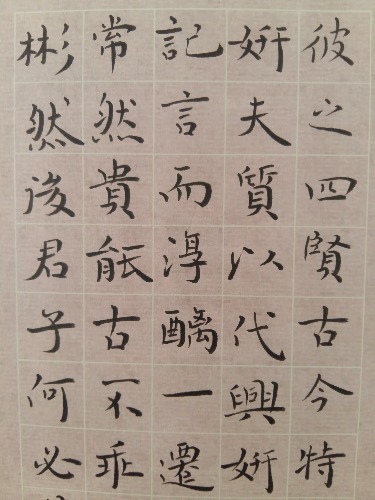 彼之四賢古今特
妍夫質以代興妍
記言而淳醨一遷
常然貴能古不乖
彬然後君子何必